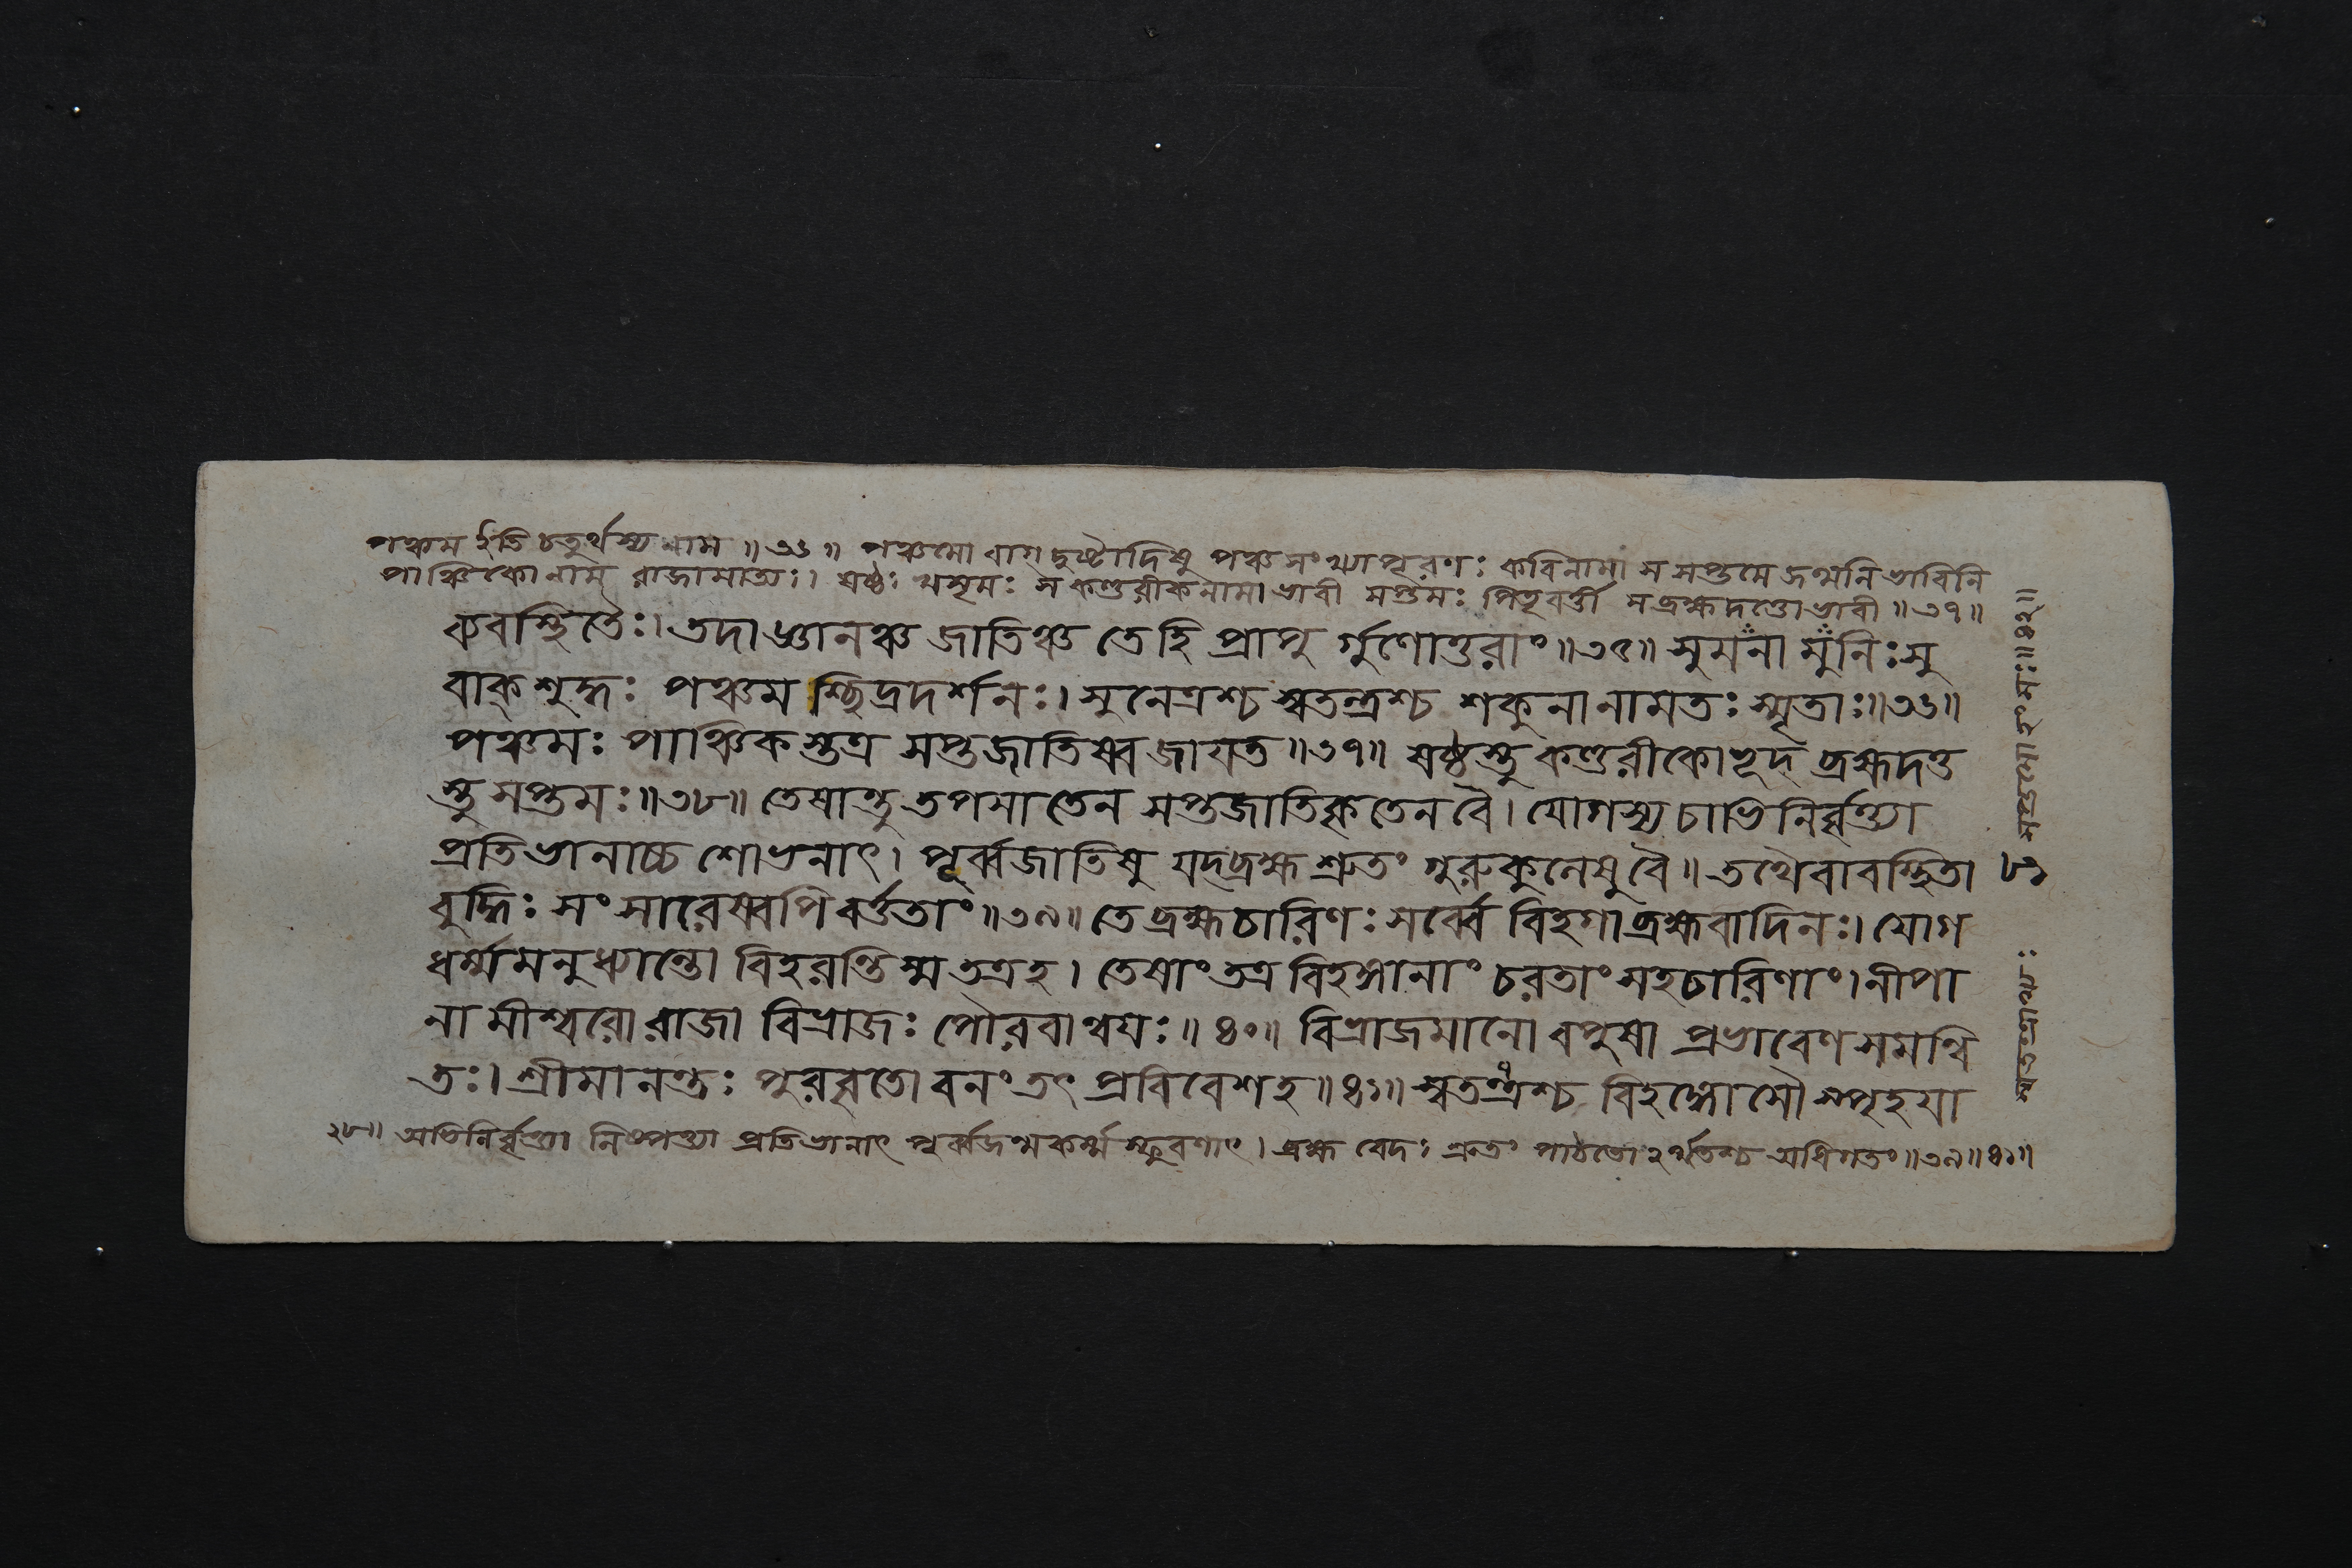 পঞ্চম ইতি চতুর্থস্য নাম ॥ ৩৬ ॥ পঞ্চমো বাগ্দুষ্টাদিষু পঞ্চসংখ্যাপূরণঃ কবিনামা স সপ্তমে জন্মনি ভাবিনি
পাঞ্চিকো নাম রাজামাত্যঃ। ষষ্ঠঃ খসৃমঃ স কণ্ডরীকনামা ভাবী সপ্তমঃ পিতৃবর্ত্তী স ব্রহ্মদত্তো ভাবী ॥ ৩৭ ॥
কবস্থিতৈঃ। তদাধ্যানঞ্চ জাতিঞ্চ তে হি প্রাপু র্গুণোত্তরাং ॥ ৩৫ ॥ সুমনা মুনিঃ সু
বাক্ শুদ্ধঃ পঞ্চম শ্ছিদ্রদর্শনঃ। সুনেত্রশ্চ স্বতন্ত্রশ্চ শকুনা নামতঃ স্মৃতাঃ ॥ ৩৬ ॥
পঞ্চমঃ পাঞ্চিক স্তত্র সপ্তজাতিষ্বজায়ত ॥ ৩৭ ॥ ষষ্ঠস্তু কণ্ডরীকোভূদ্ ব্রহ্মদত্ত
স্তু সপ্তমঃ ॥ ৩৮ ॥ তেষান্তু তপসা তেন সপ্তজাতিকৃতেন বৈ। যোগস্য চাভিনির্বৃত্ত্যা
প্রতিভানাচ্চ শোভনাৎ। পূর্ব্বজাতিষু যদ্ব্রহ্ম শ্রুতং গুরুকুলেষু বৈ ॥ তথৈবাবস্থিতা
বুদ্ধিঃ সংসারেষ্বপি বর্ত্ততাং ॥ ৩৯ ॥ তে ব্রহ্মচারিণঃ সর্ব্বে বিহগা ব্রহ্মবাদিনঃ। যোগ
ধর্ম্মমনুধ্যান্তো বিহরন্তিস্ম তত্র হ। তেষাং তত্র বিহঙ্গানাং চরতাং সহচারিণাং। নীপা
নামীশ্বরো রাজা বিভ্রাজঃ পৌরবান্বয়ঃ ॥ ৪০ ॥ বিভ্রাজমানো বপুষা প্রভাবেণ সমন্বি
তঃ। শ্রীমানন্তঃ পুরবৃতো বনং তৎ প্রবিবেশ হ ॥ ৪১ ॥ স্বতন্ত্রশ্চ বিহঙ্গোসৌ স্পৃহয়া
৩৮ ॥ অভিনির্বৃত্ত্যা নিষ্পত্ত্যা প্রতিভানাৎ পূর্ব্বজন্মকর্ম্ম স্ফুরণাৎ। ব্রহ্ম বেদঃ শ্রুতং পাঠতোঽর্থতশ্চ অধিগতং ॥ ৩৯ ॥ ৪১ ॥
৮১